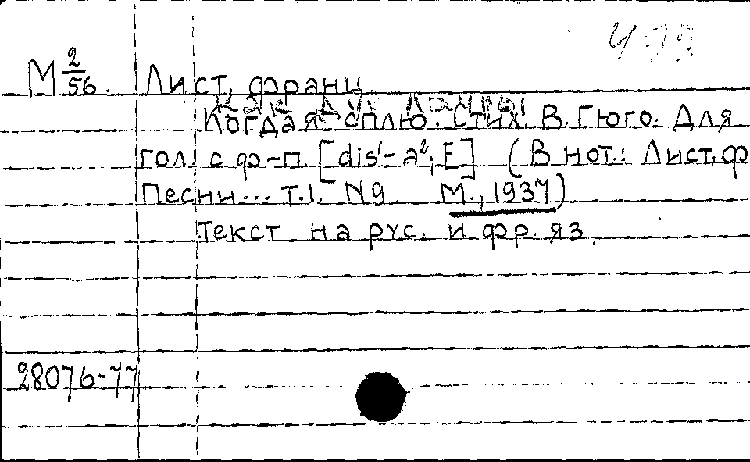 М 2/56. Лист, Франц
Когда я сплю. Стих. В. Гюго. Для
гол. с ф-п. [dis¹- a², E] (В нот.: Лист, Ф
Песни... т.1. N9 М., 1937)
Текст на рус. и фр. яз.
28076-77